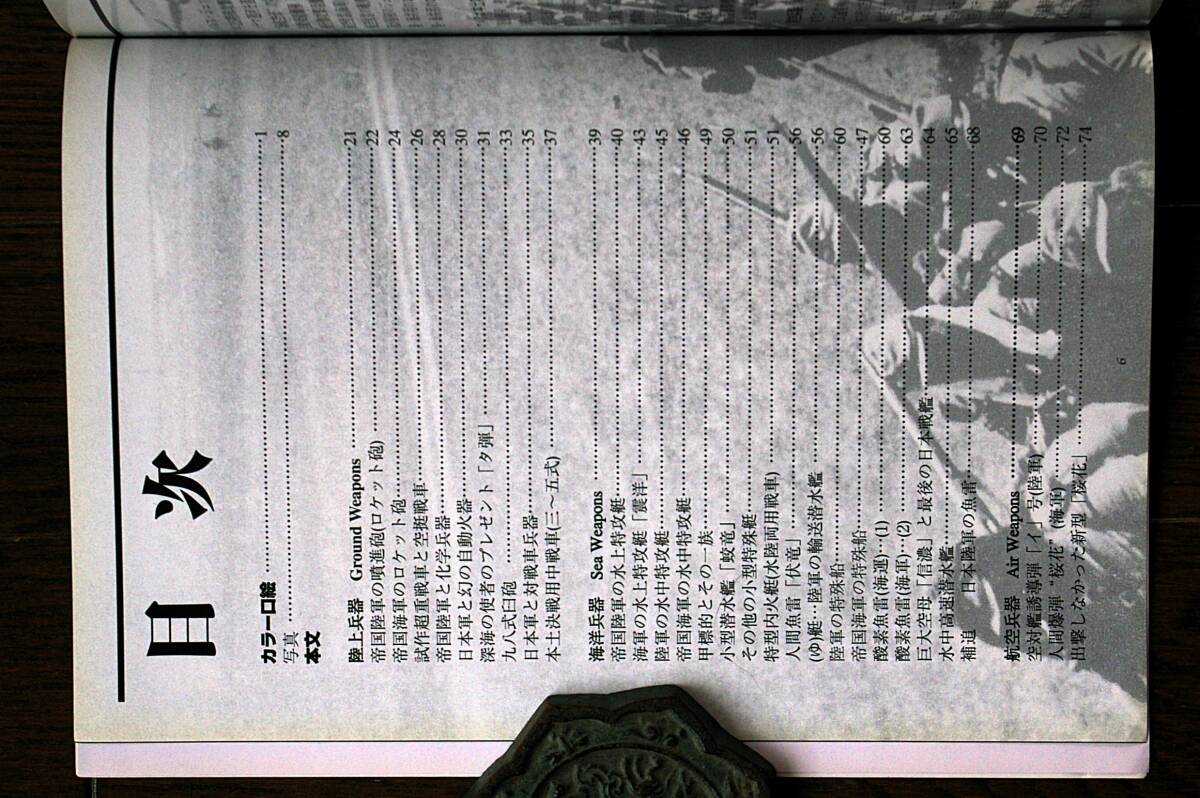 目次
カラー口絵……1
写真……8
本文
陸上兵器 Ground Weapons……21
帝国陸軍の噴進砲(ロケット砲)……22
帝国海軍のロケット砲……24
試作超重戦車と空挺戦車……26
帝国陸軍と化学兵器……28
日本軍と幻の自動火器……30
深海の使者のプレゼント「タ弾」……31
九八式臼砲……33
日本軍と対戦車兵器……35
本土決戦用中戦車(三〜五式)……37
海洋兵器 Sea Weapons……39
帝国陸軍の水上特攻艇……40
海軍の水上特攻艇「震洋」……43
陸軍の水中特攻艇……45
帝国海軍の水中特攻艇……46
甲標的とその一族……49
小型潜水艦「蛟竜」……50
その他の小型特殊艇……51
特型内火艇(水陸両用戦車)……51
人間魚雷「伏竜」……56
(ゆ)艇‥陸軍の輸送潜水艦……56
陸軍の特殊船……60
帝国海軍の特殊船……47
酸素魚雷(海運)‥(1)……60
酸素魚雷(海軍)‥(2)……63
巨大空母「信濃」と最後の日本戦艦……64
水中高速潜水艦……65
補追 日本陸軍の魚雷……68
航空兵器 Air Weapons……69
空対艦誘導弾「イ」号(陸軍)……70
人間爆弾“桜花”(海軍)……72
出撃しなかった新型「桜花」……74
6